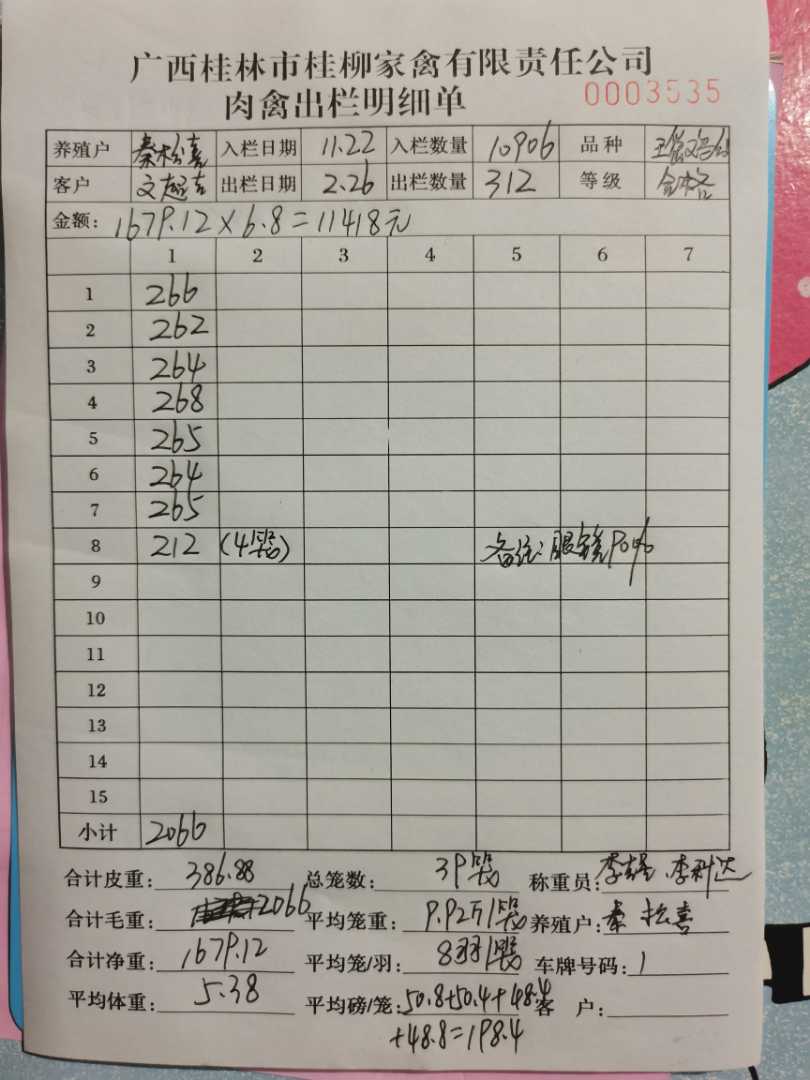 广西桂林市桂柳家禽有限责任公司
肉禽出栏明细单 0003535
养殖户 秦松喜 入栏日期 11.22 入栏数量 10906 品种
客户 出栏日期 2.26 出栏数量 312 等级 合格
金额: 1679.12×6.8=11418元
1 2 3 4 5 6 7
1 266
2 262
3 264
4 268
5 265
6 264
7 265
8 212 (4笼) 备注:眼镜90%
9
10
11
12
13
14
15
小计 2066
合计皮重: 386.88 总笼数: 39笼 称重员: 李科达
合计毛重: 2066 平均笼重: 9.92斤/笼 养殖户: 秦松喜
合计净重: 1679.12 平均笼/羽: 8羽/笼 车牌号码: /
平均体重: 5.38 平均磅/笼: 50.8+50.4+48.4 客 户:
+48.8=198.4